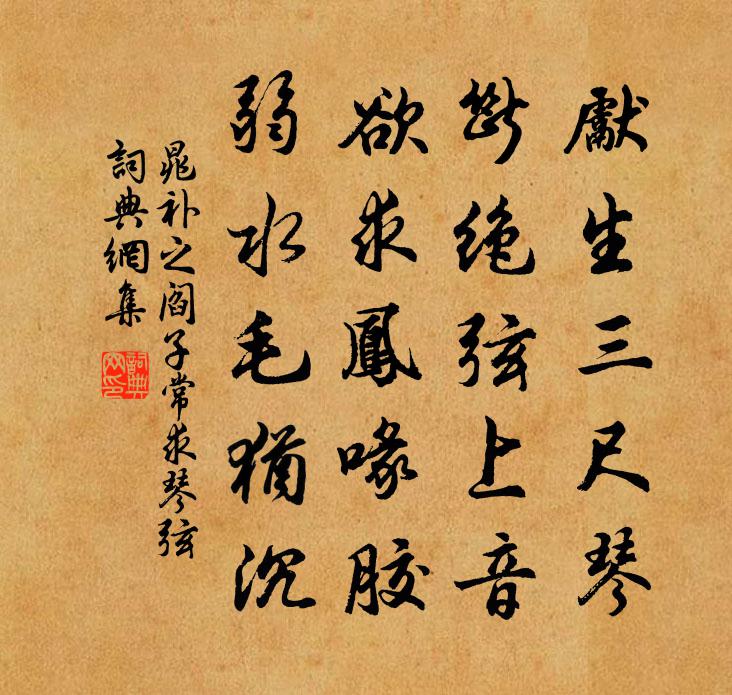 獻生三尺琴
斷绝弦上音
欲求鳳喙胶
弱水毛猶沉
晁补之閻子常求琴弦
詞典網集
詞典网印